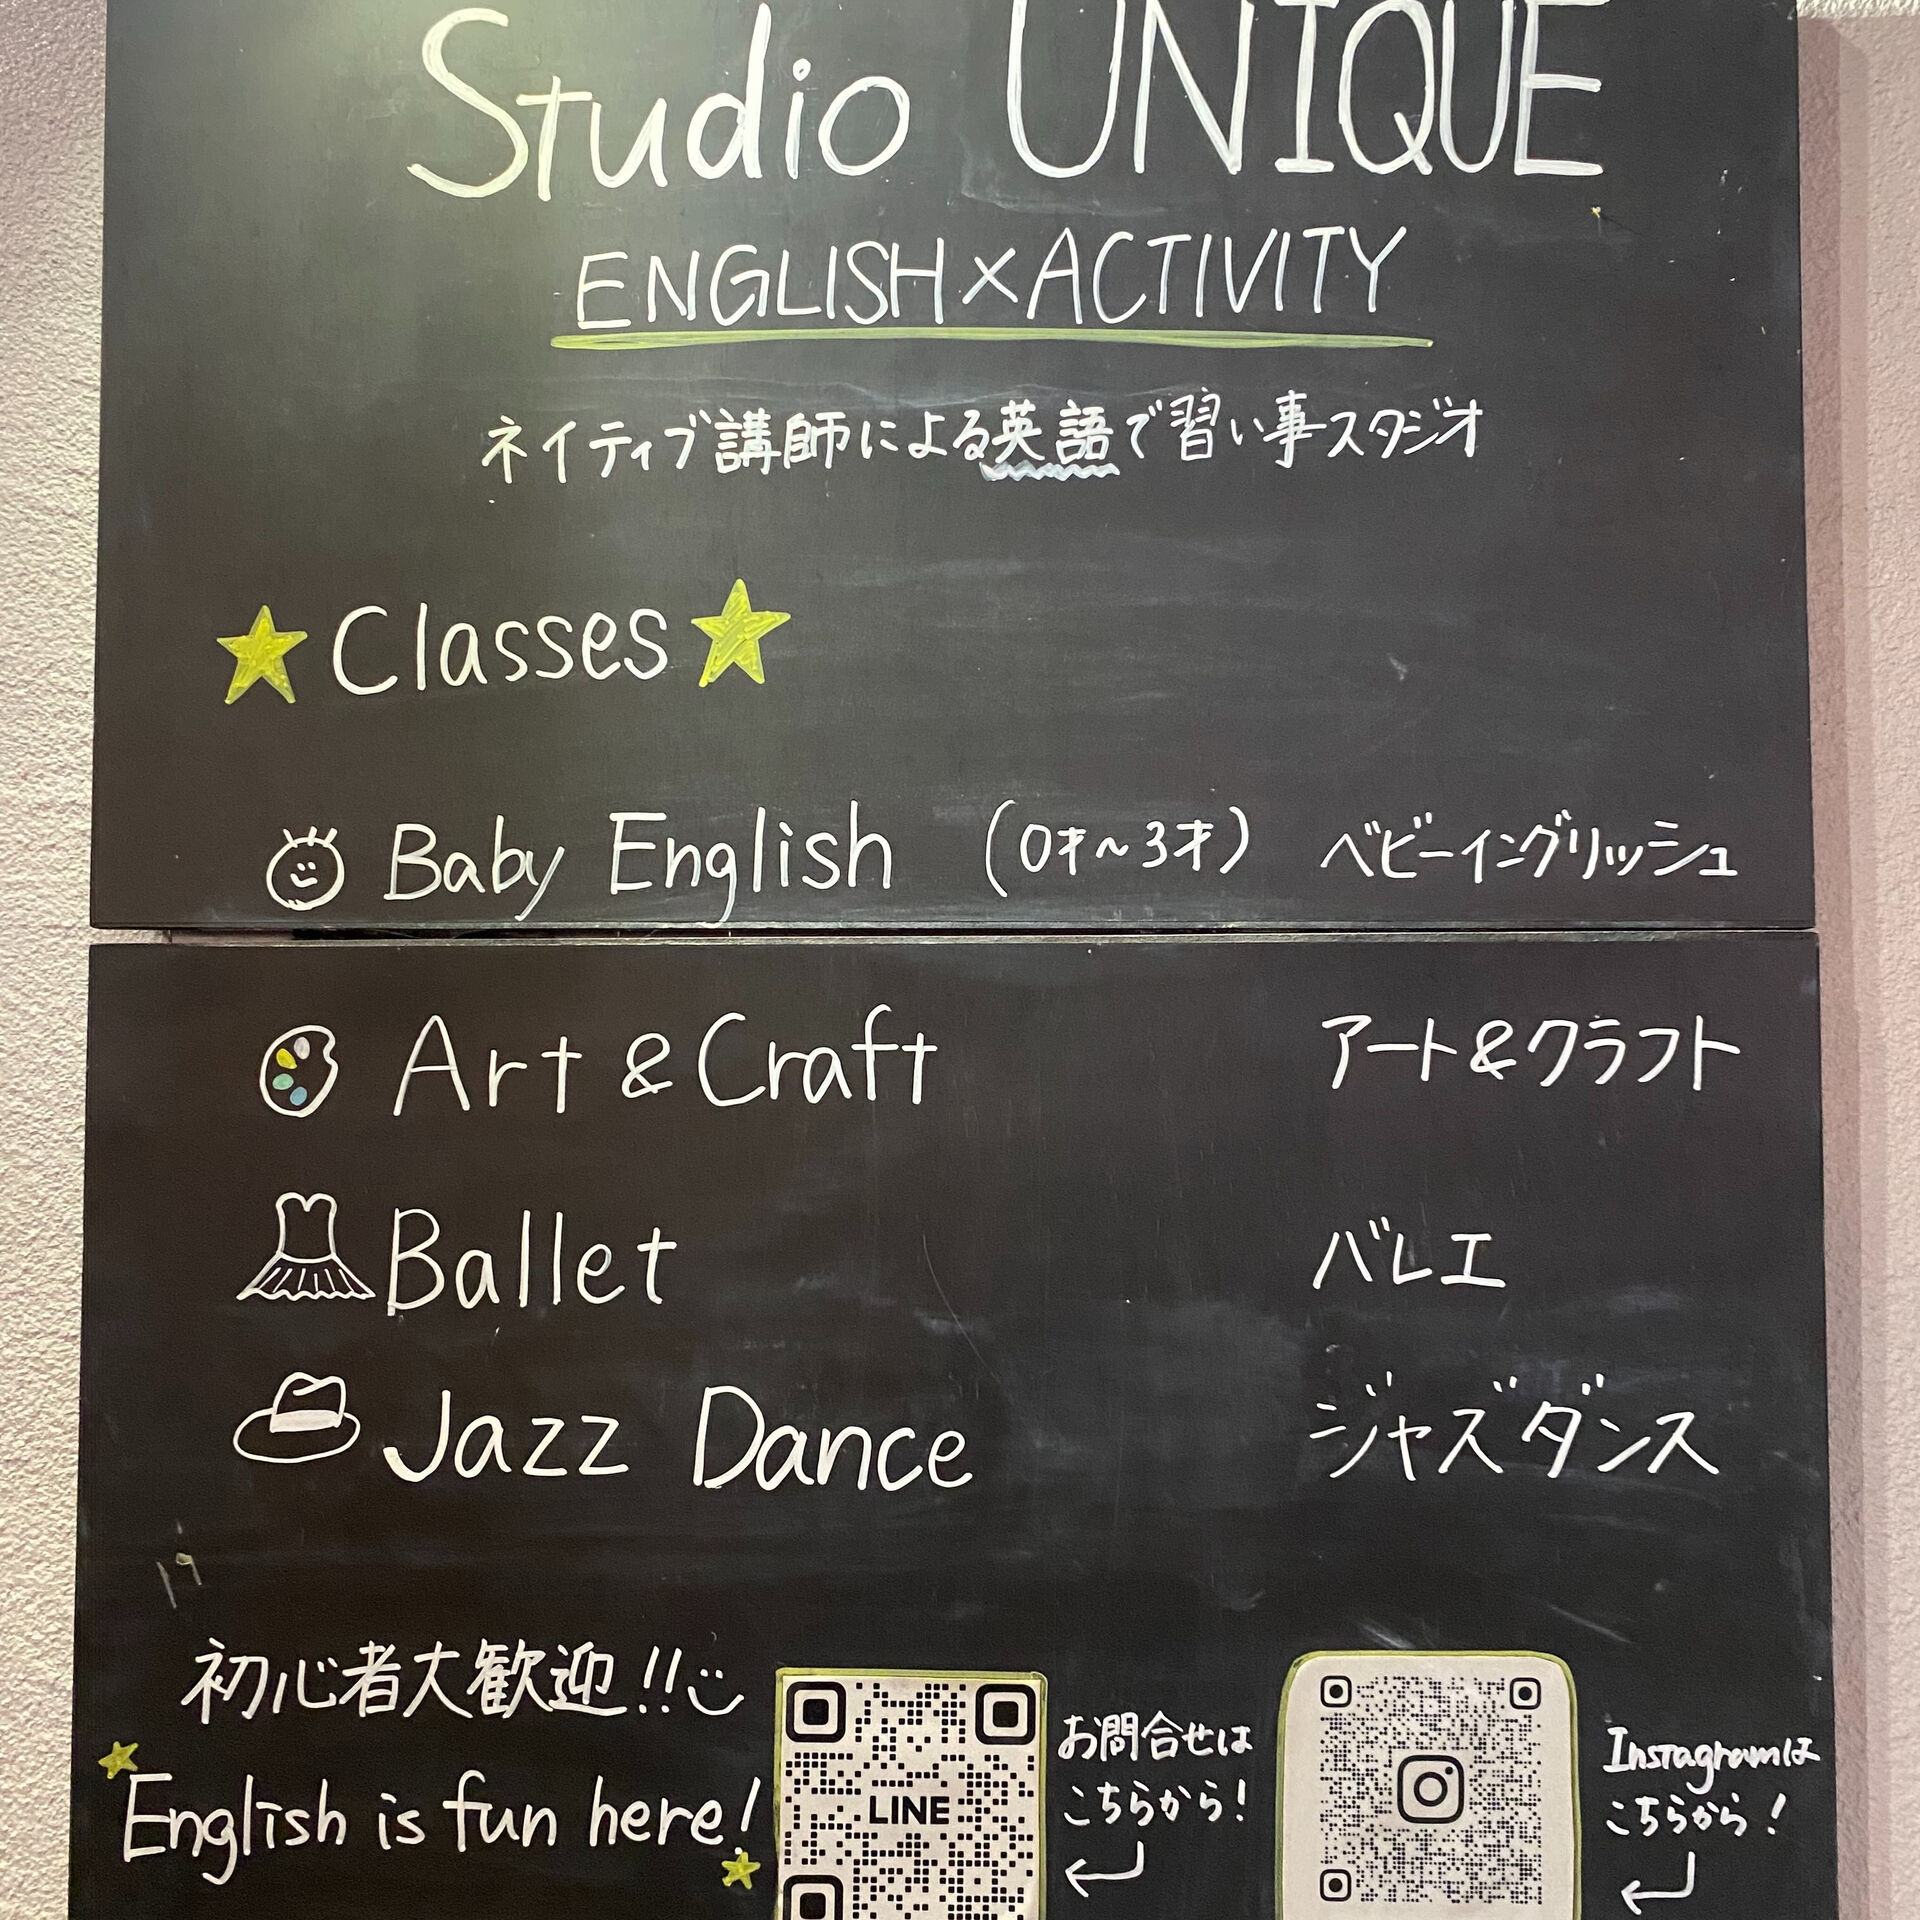 Studio UNIQUE
ENGLISH×ACTIVITY
ネイティブ講師による英語で習い事スタジオ
★Classes★
Baby English (0才~3才) ベビーイングリッシュ
Art & Craft アート&クラフト
Ballet バレエ
Jazz Dance ジャズダンス
初心者大歓迎!!
English is fun here!
LINE
お問合せは
こちらから!
Instagramは
こちらから!